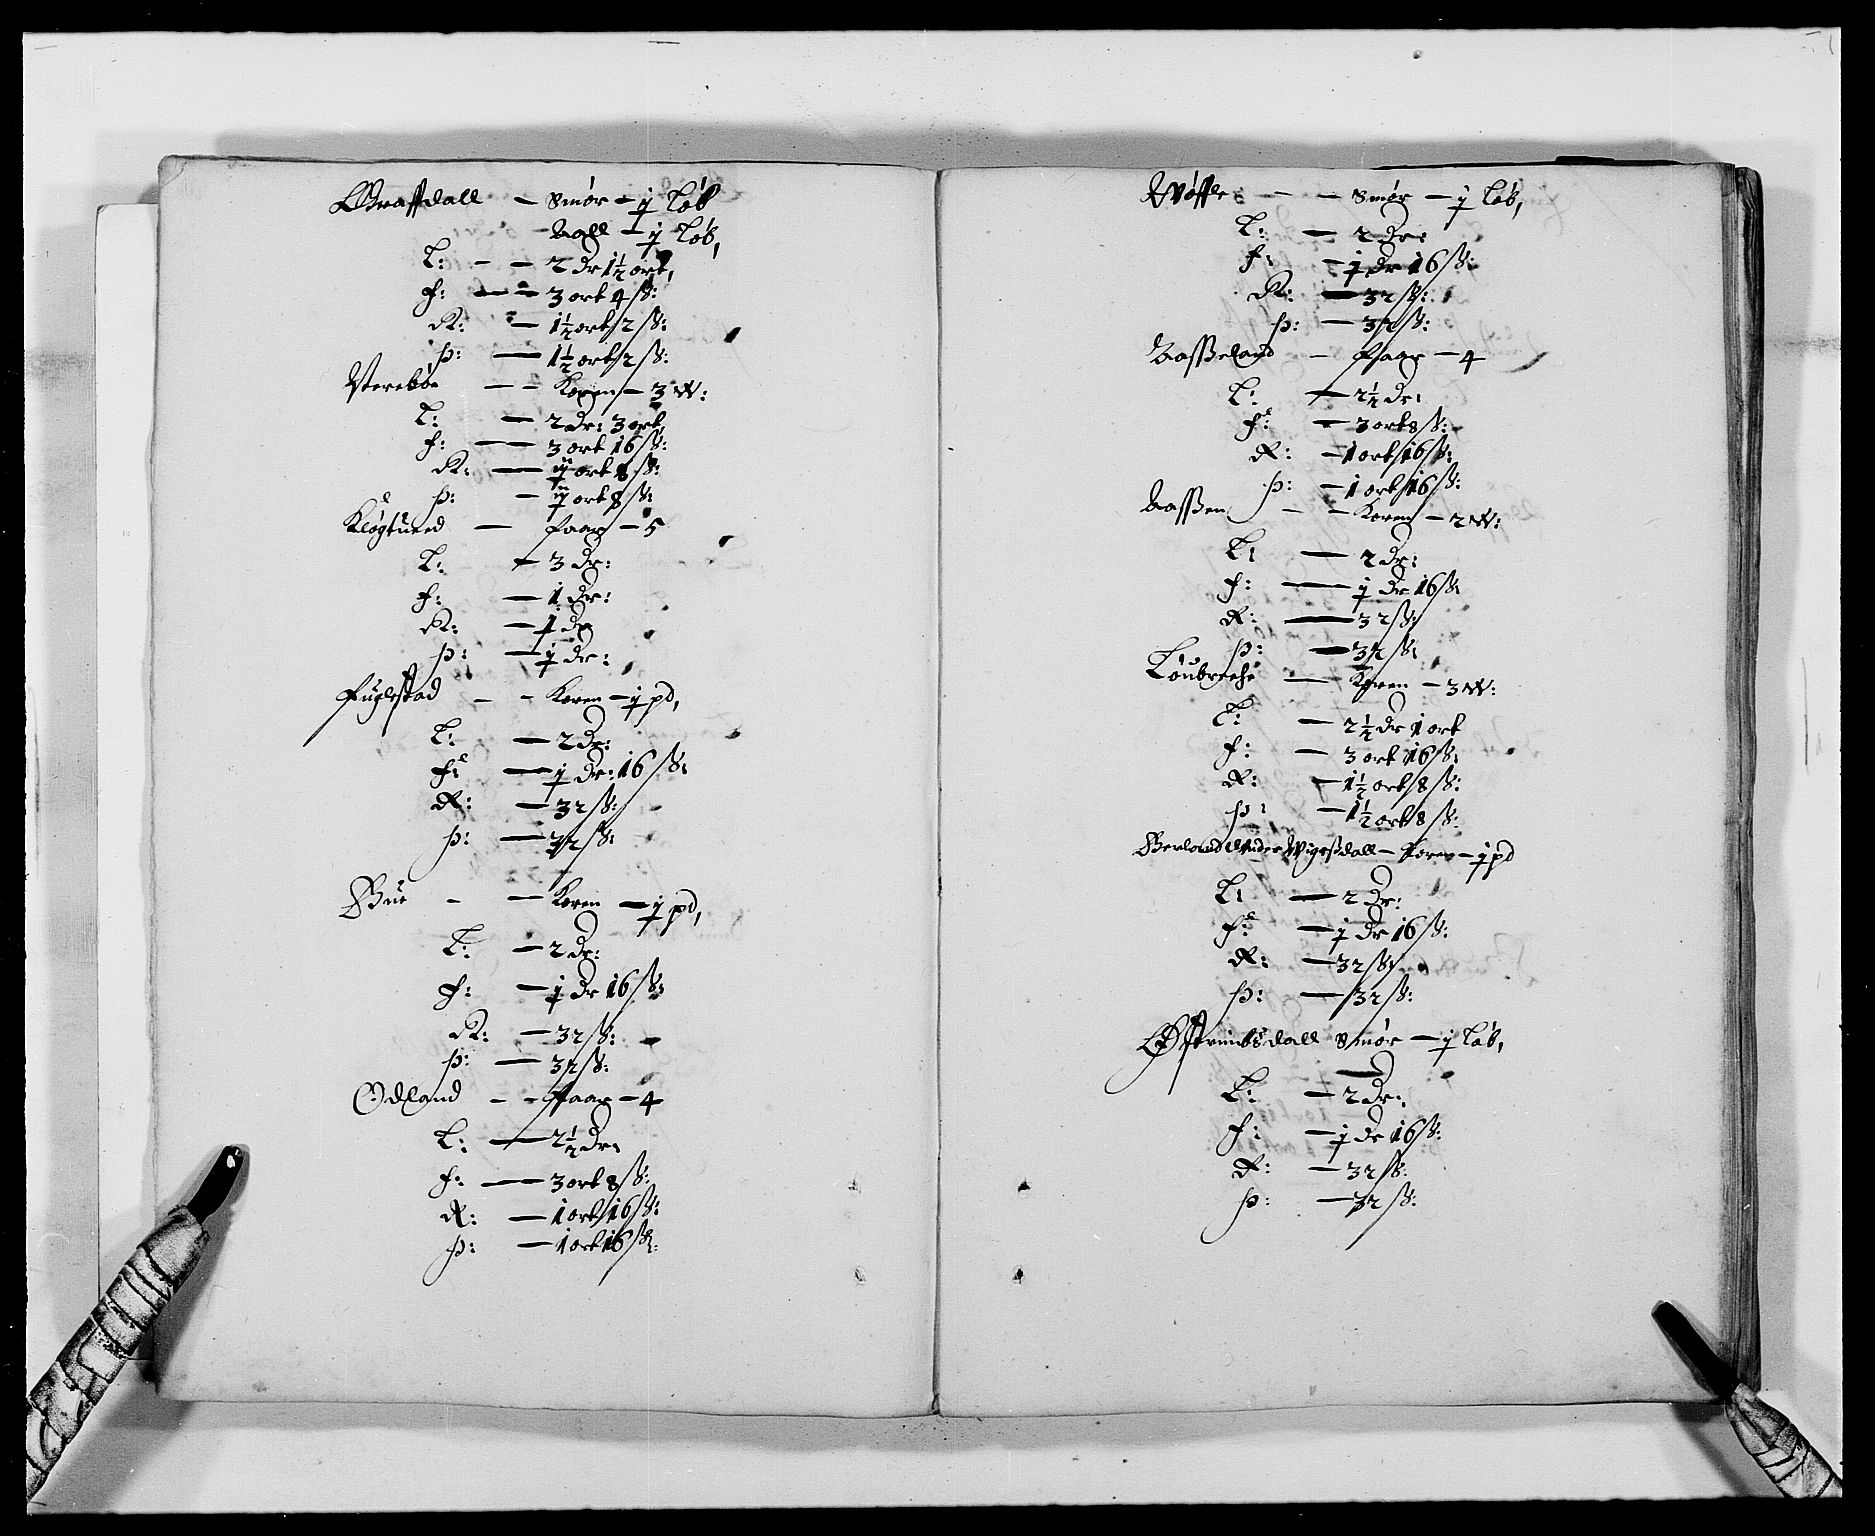 Grafsdall – Smør – j Løb
– Aall – j Løb,
L: – – 2 dr 1½ ort,
F: – – 3 ort 4 ß:
K: – 1½ ort 2 ß:
H: – 1½ ort 2 ß:
Verebøe – – Korn – 3 W:
L: – 2 dr: 3 ort,
F: – 3 ort 16 ß:
K: – ij ort 8 ß:
H: – ij ort 8 ß:
Kløgtued – faar – 5
L: – 3 dr:
F: – 1 dr:
K: – j dr
H: – j dr:
Fuglestad – – Korn – j pd,
L: – 2 dr:
F: – j dr: 16 ß:
K: – 32 ß:
H: – 32 ß:
Bue – – Korn – j pd,
L: – 2 dr:
F: – j dr 16 ß:
K: – 32 ß:
H: – 32 ß:
Odland – – faar – 4
L: – 2½ dr:
F: – 3 ort 8 ß:
K: – 1 ort 16 ß:
H: – 1 ort 16 ß:
– – Smør – j Løb,
L: – 2 dr:
F: – j dr 16 ß:
K: – 32 ß:
H: – 32 ß:
Aasseland – faar – 4
L: – 2½ dr:
F: – 3 ort 8 ß:
K: – 1 ort 16 ß:
H: – 1 ort 16 ß:
Aassen – – Korn – 2 W:
L: – 2 dr:
F: – j dr 16 ß:
K: – 32 ß:
H: – 32 ß:
Løubrecke – Korn – 3 W:
L: – 2½ dr 1 ort
F: – 3 ort 16 ß:
K: – 1½ ort 8 ß:
H: – 1½ ort 8 ß:
Berland Under Wigesdall – Korn – j pd
L: – 2 dr:
F: – j dr 16 ß:
K: – 32 ß:
H: – 32 ß:
Smør – j Løb,
L: – 2 dr:
F: – j dr 16 ß:
K: – 32 ß:
H: – 32 ß: